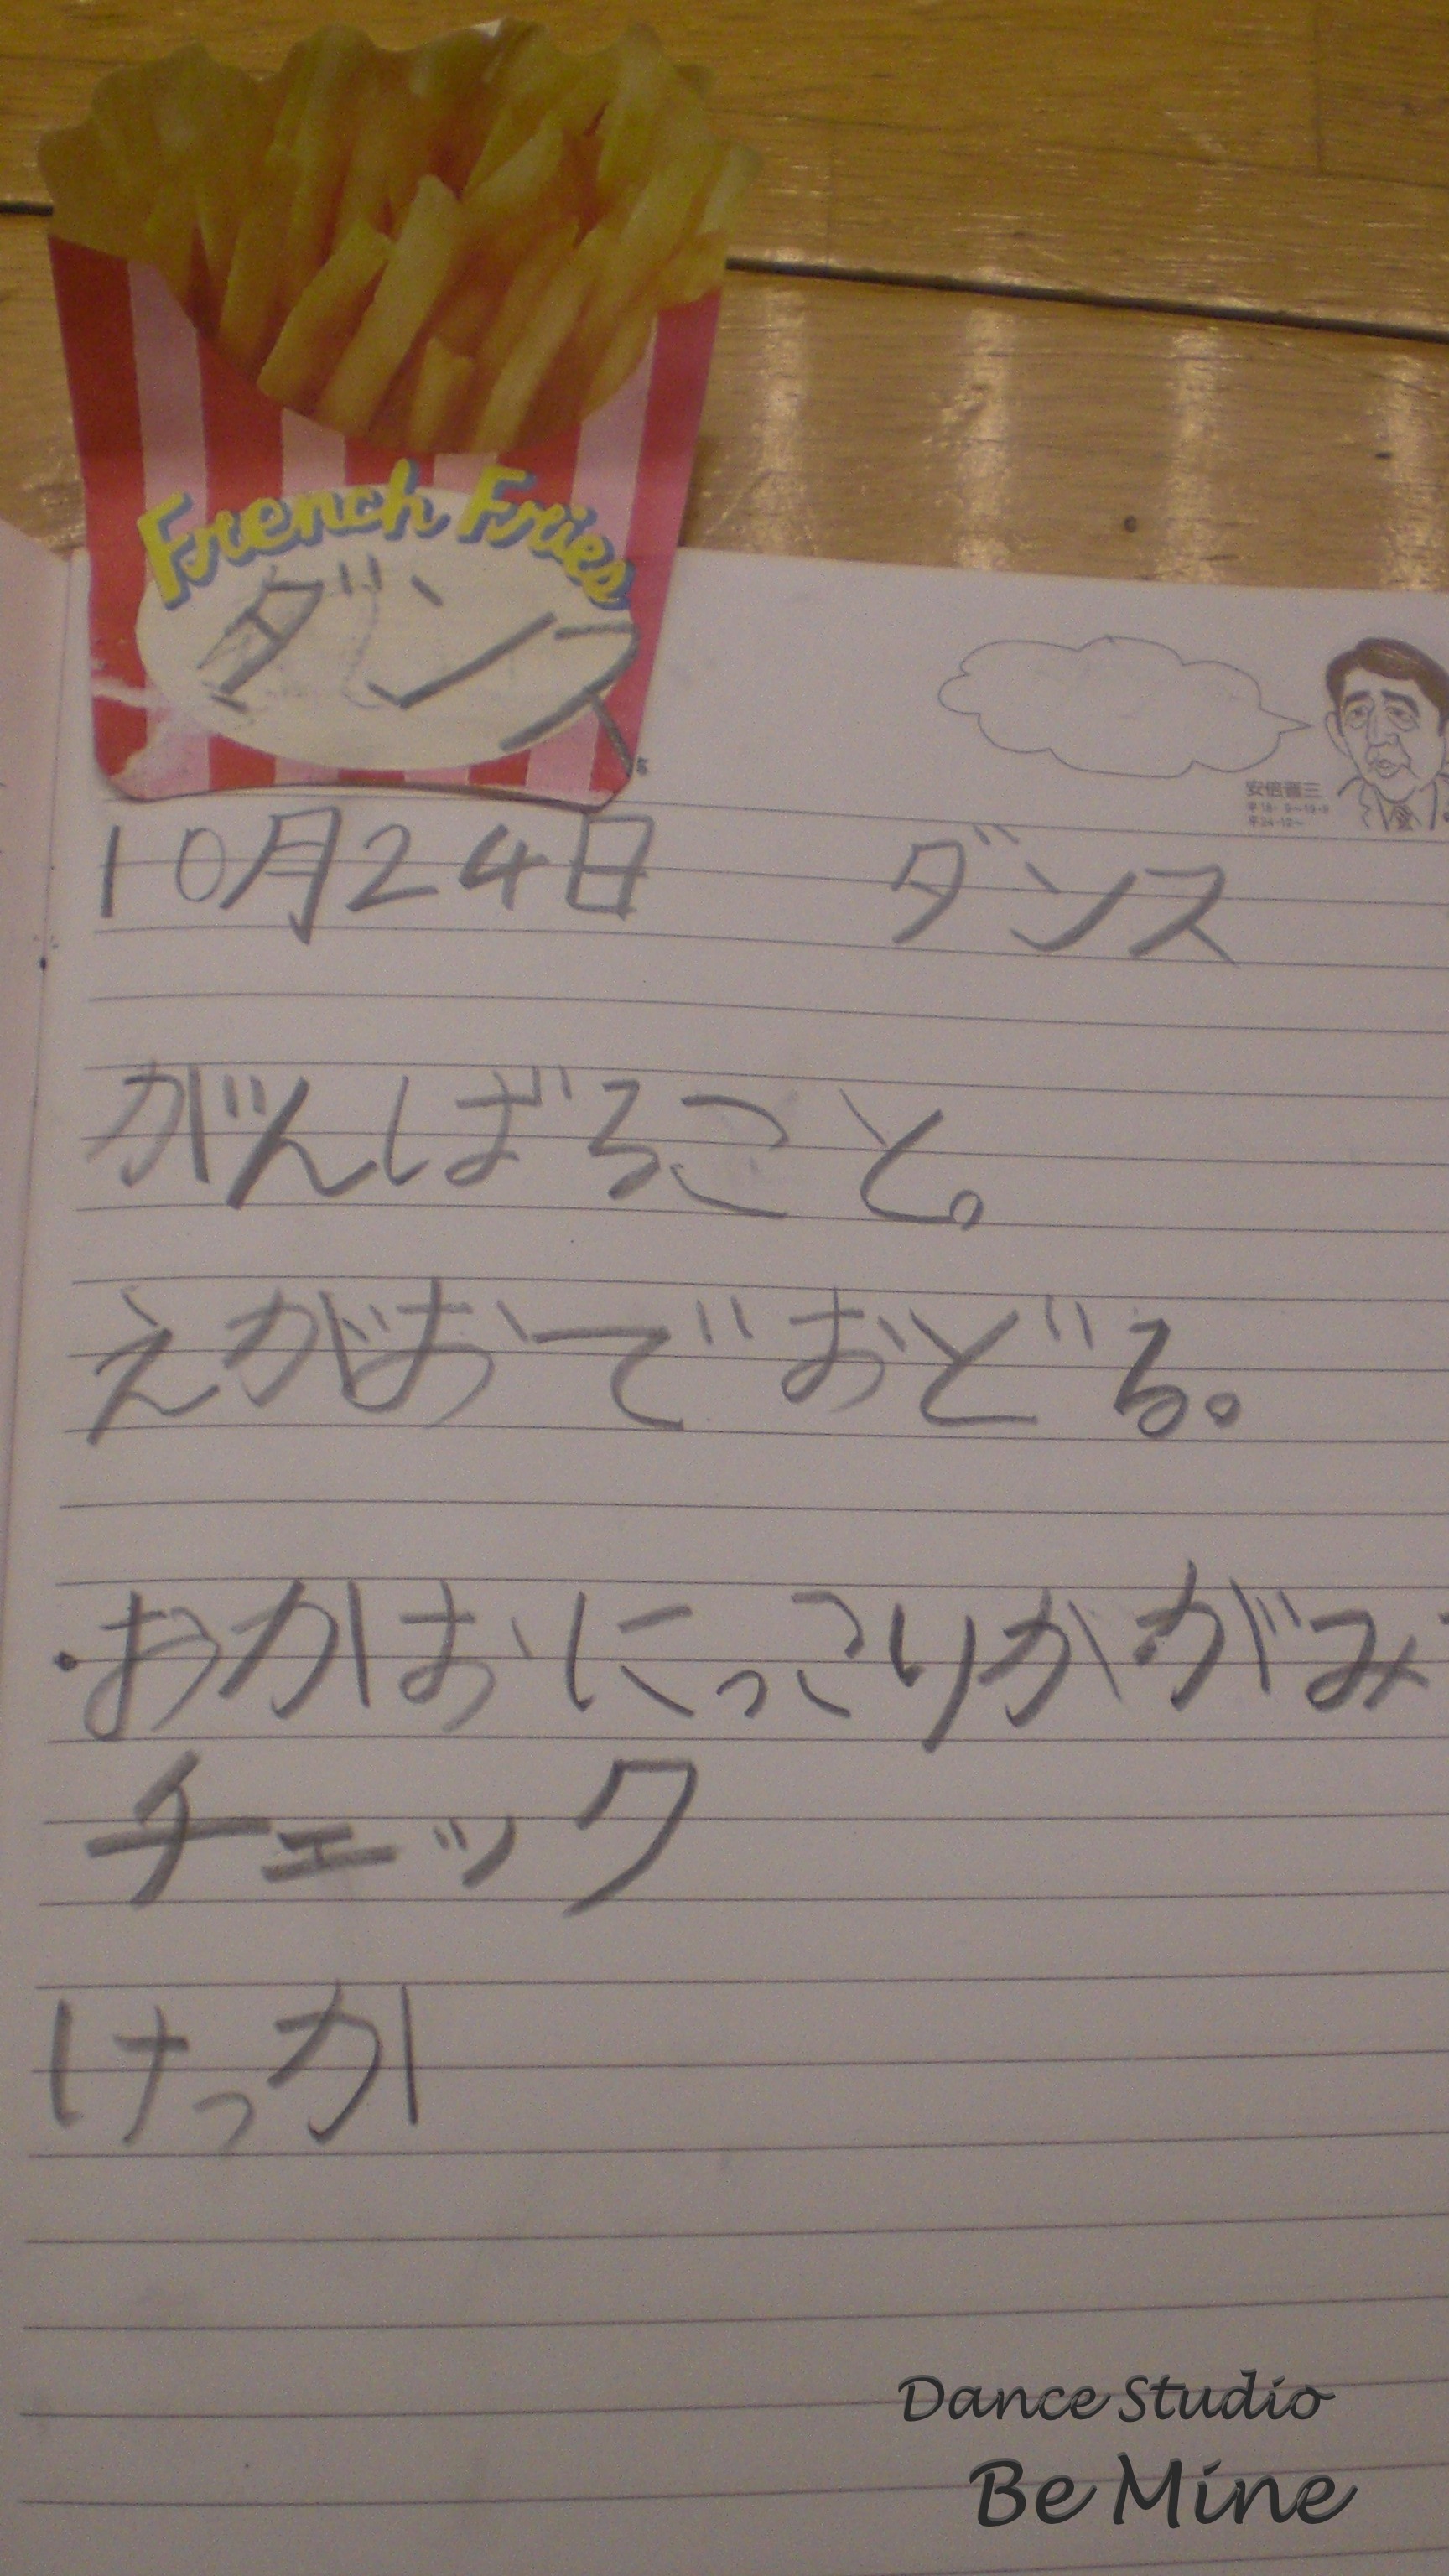 French Fries
ダンス
安倍晋三
平18・9〜19・9
平24・12〜
10月24日 ダンス
がんばること。
えがおでおどる。
・おかおにっこりかがみ
チェック
けっか
Dance Studio
Be Mine